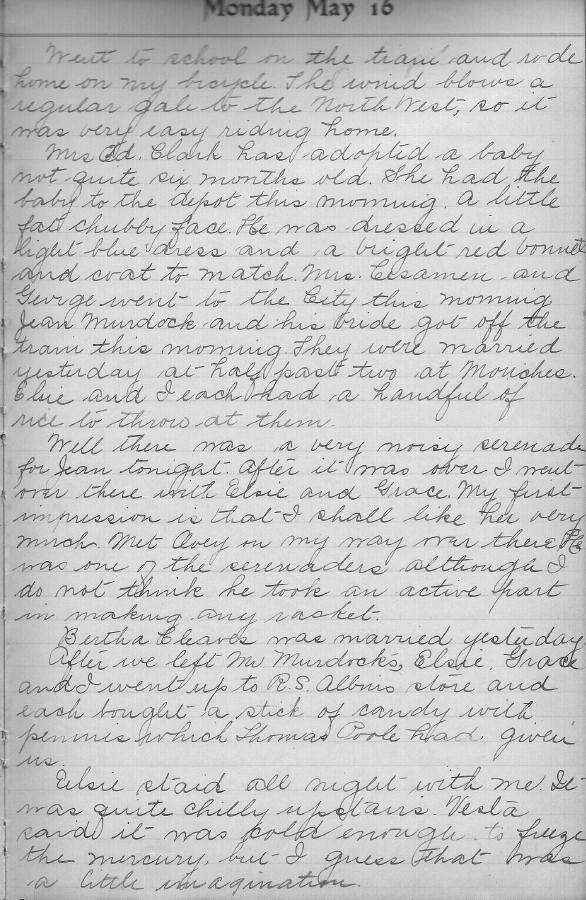 Monday May 16
Went to school on the train and rode
home on my bicycle. The wind blows a
regular gale to the North West, so it
was very easy riding home.
Mrs Ed. Clark has adopted a baby
not quite six months old. She had the
baby to the depot this morning. A little
fat chubby face. He was dressed in a
light blue dress and a bright red bonnet
and coat to match. Mrs. and
George went to the City this morning
Jean Murdock and his bride got off the
train this morning. They were married
yesterday at half past two at Monches.
Elsie and I each had a handful of
rice to throw at them.
Well there was a very noisy serenade
for Jean tonight. After it was over I went
over there with Elsie and Grace. My first
impression is that I shall like her very
much. Met Avey on my way over there. He
was one of the serenaders although I
do not think he took an active part
in making any racket.
Bertha Cleaves was married yesterday
After we left Mr Murdock's, Elsie, Grace
and I went up to R.S. Albins store and
each bought a stick of candy with
pennies which Thomas Poole had given
us.
Elsie staid all night with me. It
was quite chilly upstairs. Vesta
said it was cold enough to freeze
the mercury, but I guess that was
a little imagination.